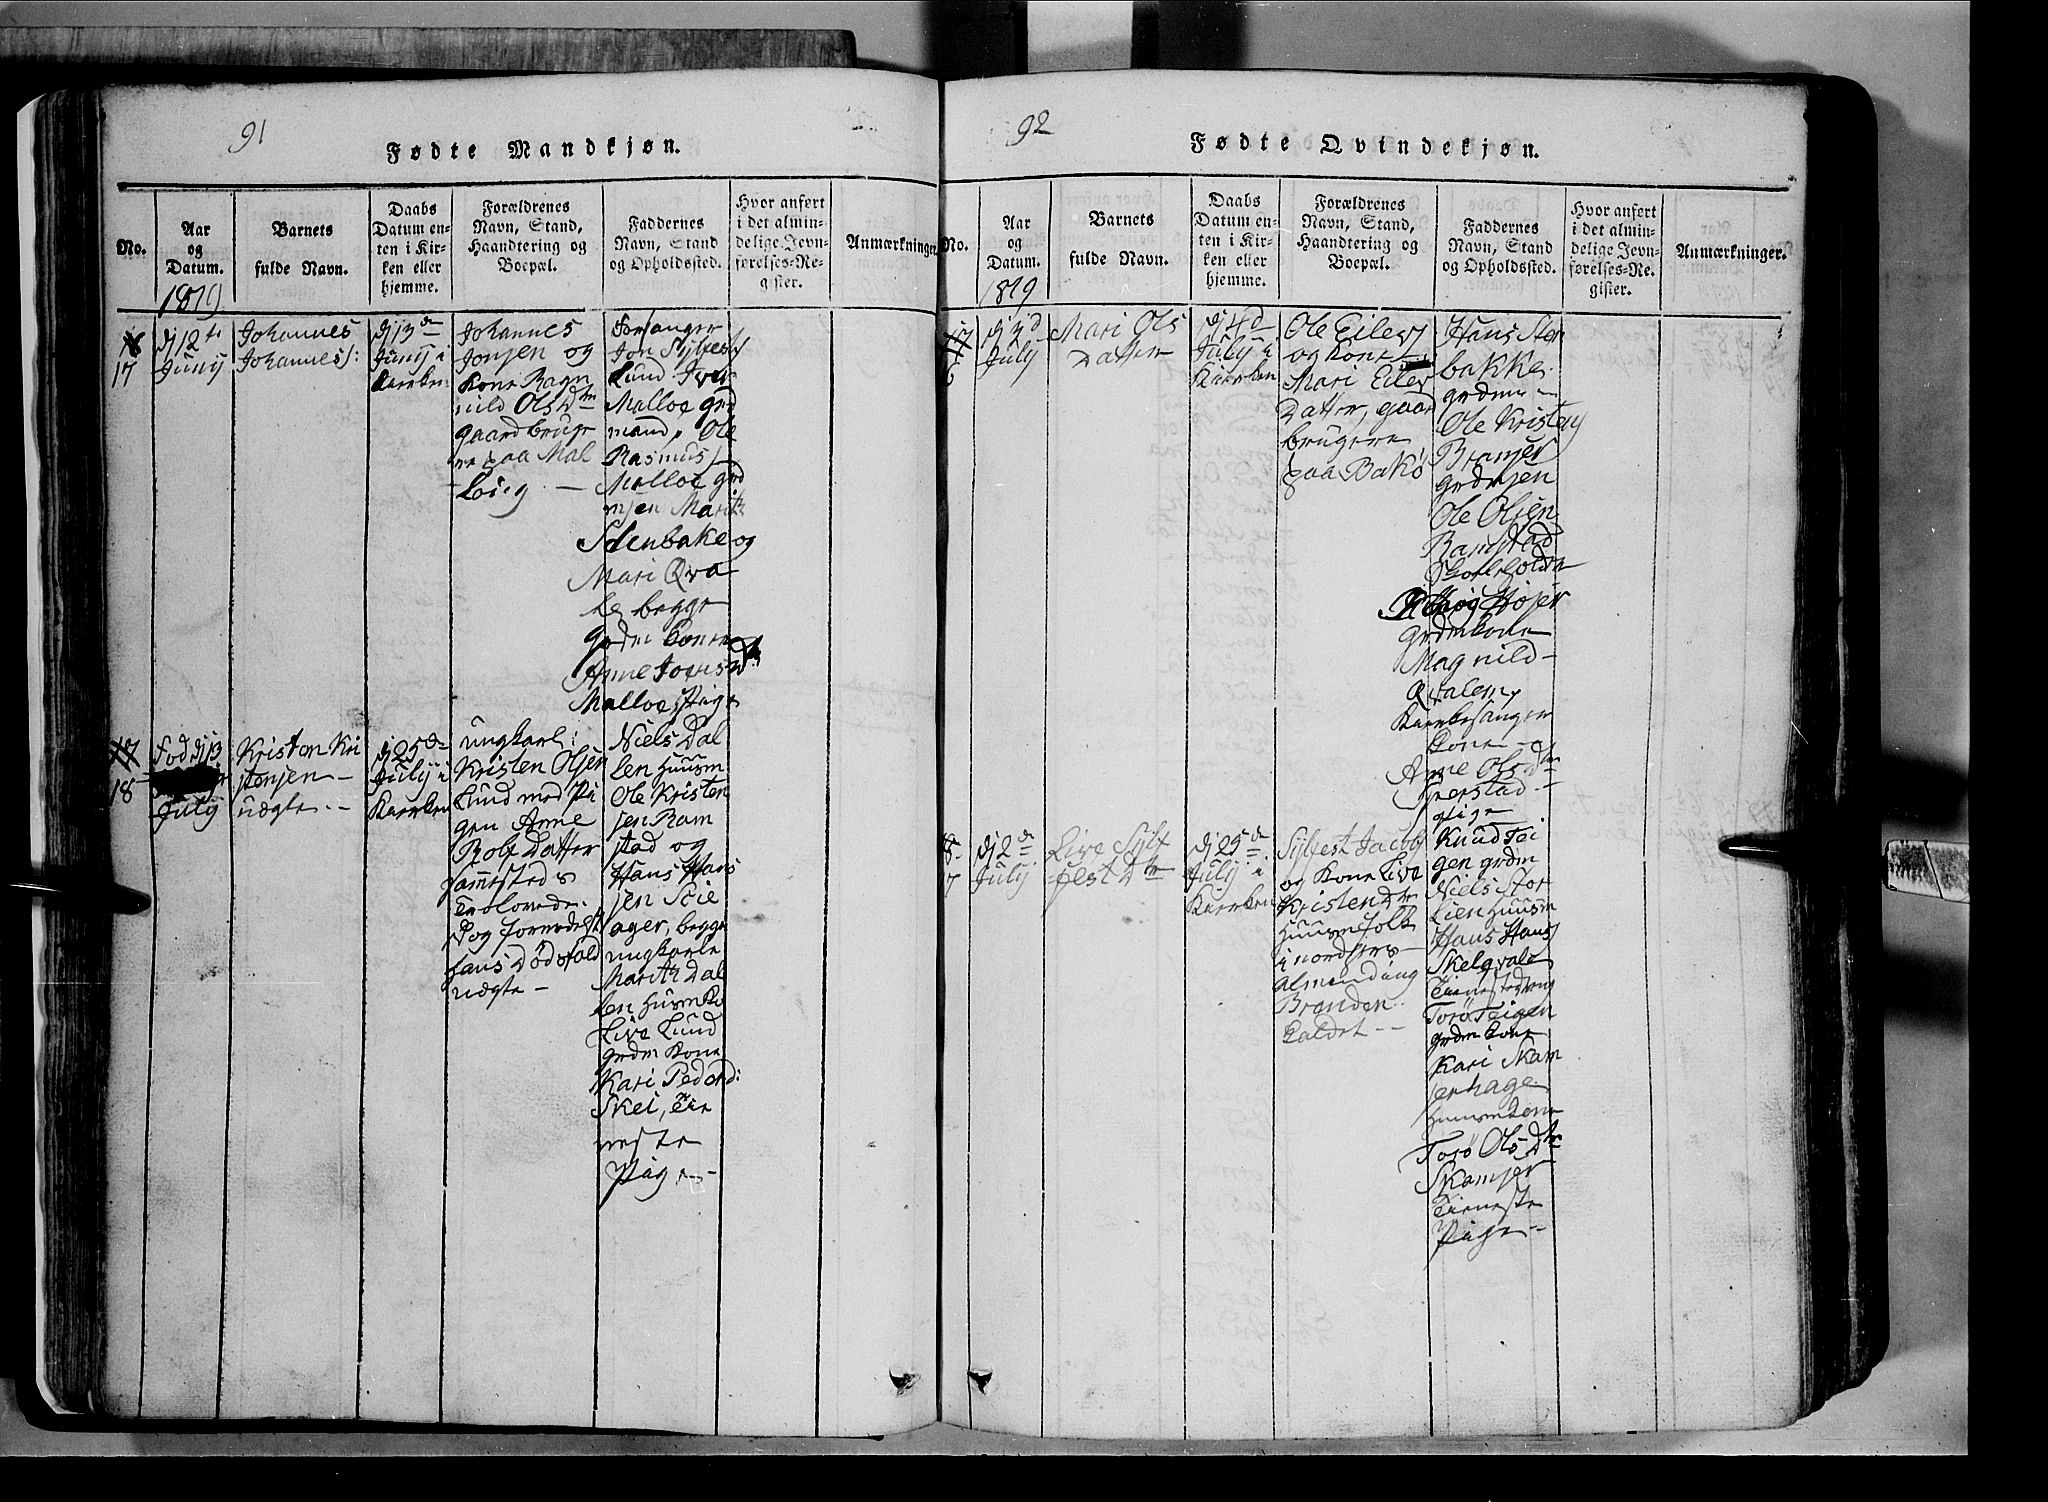 91
Fødte Mandkjøn.
No.
Aar
og
Datum.
1819
Barnets
fulde Navn.
Daabs
Datum en-
ten i Kir-
ken eller
hjemme.
Forældrenes
Navn, Stand,
Haandtering og
Boepæl.
Faddernes
Navn, Stand
og Opholdssted.
Hvor anført
i det almin-
delige Jevn-
førelses-Re-
gister.
Anmærkninger.
17
12te
Junij
Johannes
Johannes:
13de
Junij i
Kierken
Johannes
Jonsen og
Kone Ragn
nild Olsdtr
gaardbruge
re paa Mal
Forsanger
Jon Sylfest
Lund. Iver
Malloe grd
mand, Ole
Rasmus
Malloe grd
Marith
Stenbake og
Mari Qva
le begge
grdm Koner
Anne Joensdtr
Malloe, Pige
18
Fød
July
Kristen Kri
stensen
uægte
25de
Julij i
Kierken
ungkarl:
Kristen Olsen
Lund med Pi
gen Anne
Rolf Datter
sammesteds
Trolovede.
Dog formedelst
hans Dødsfald
uægte
Niels Dal
len Huusm
Ole Kristen
sen Ram
stad og
Hans Hans
sen Skie
ager, begge
ungkarle
Marith Dal
len HusmKo
Live Lund
grdm Kone
Kari Pedersd:
Skei, Tie
neste
Pige
92
Fødte Qvindekjøn.
No.
Aar
og
Datum.
1819
Barnets
fulde Navn.
Daabs
Datum en-
ten i Kir-
ken eller
hjemme.
Forældrenes
Navn, Stand,
Haandtering og
Boepæl.
Faddernes
Navn, Stand
og Opholdssted.
Hvor anført
i det almin-
delige Jevn-
førelses-Re-
gister.
Anmærkninger.
July
Mari Ols
Datter
4de
July i
Kierken
Ole Eilevs
og Kone
Mari Eilev
Datter, gaard
brugere
paa Bakø
Hans Sten
bakke
grdm
Ole Kristens
Ole Olsen
Ramstad
Højer
grdmkone
Magnild
Qvalem
Kierkesanger
Kone
Anne Olsdtr
Pige
2de
July
Live Sylf
fest Dtr
25de
July i
Kierken
Sylfest Jacobs
og Kone Live
Kristen Dtr
Huusmfolk
i nordherets
almending
Branden
kaldet
Knud Tei
gen grdm
Niels Stor
lien Huusm
Hans Hans
Skelqvale
Tienestedreng
Torø Teigen
grdm kone
Kari Skam
serhage
Huusmkone
Torø Olsdtr
Skamser
Tieneste
Pige